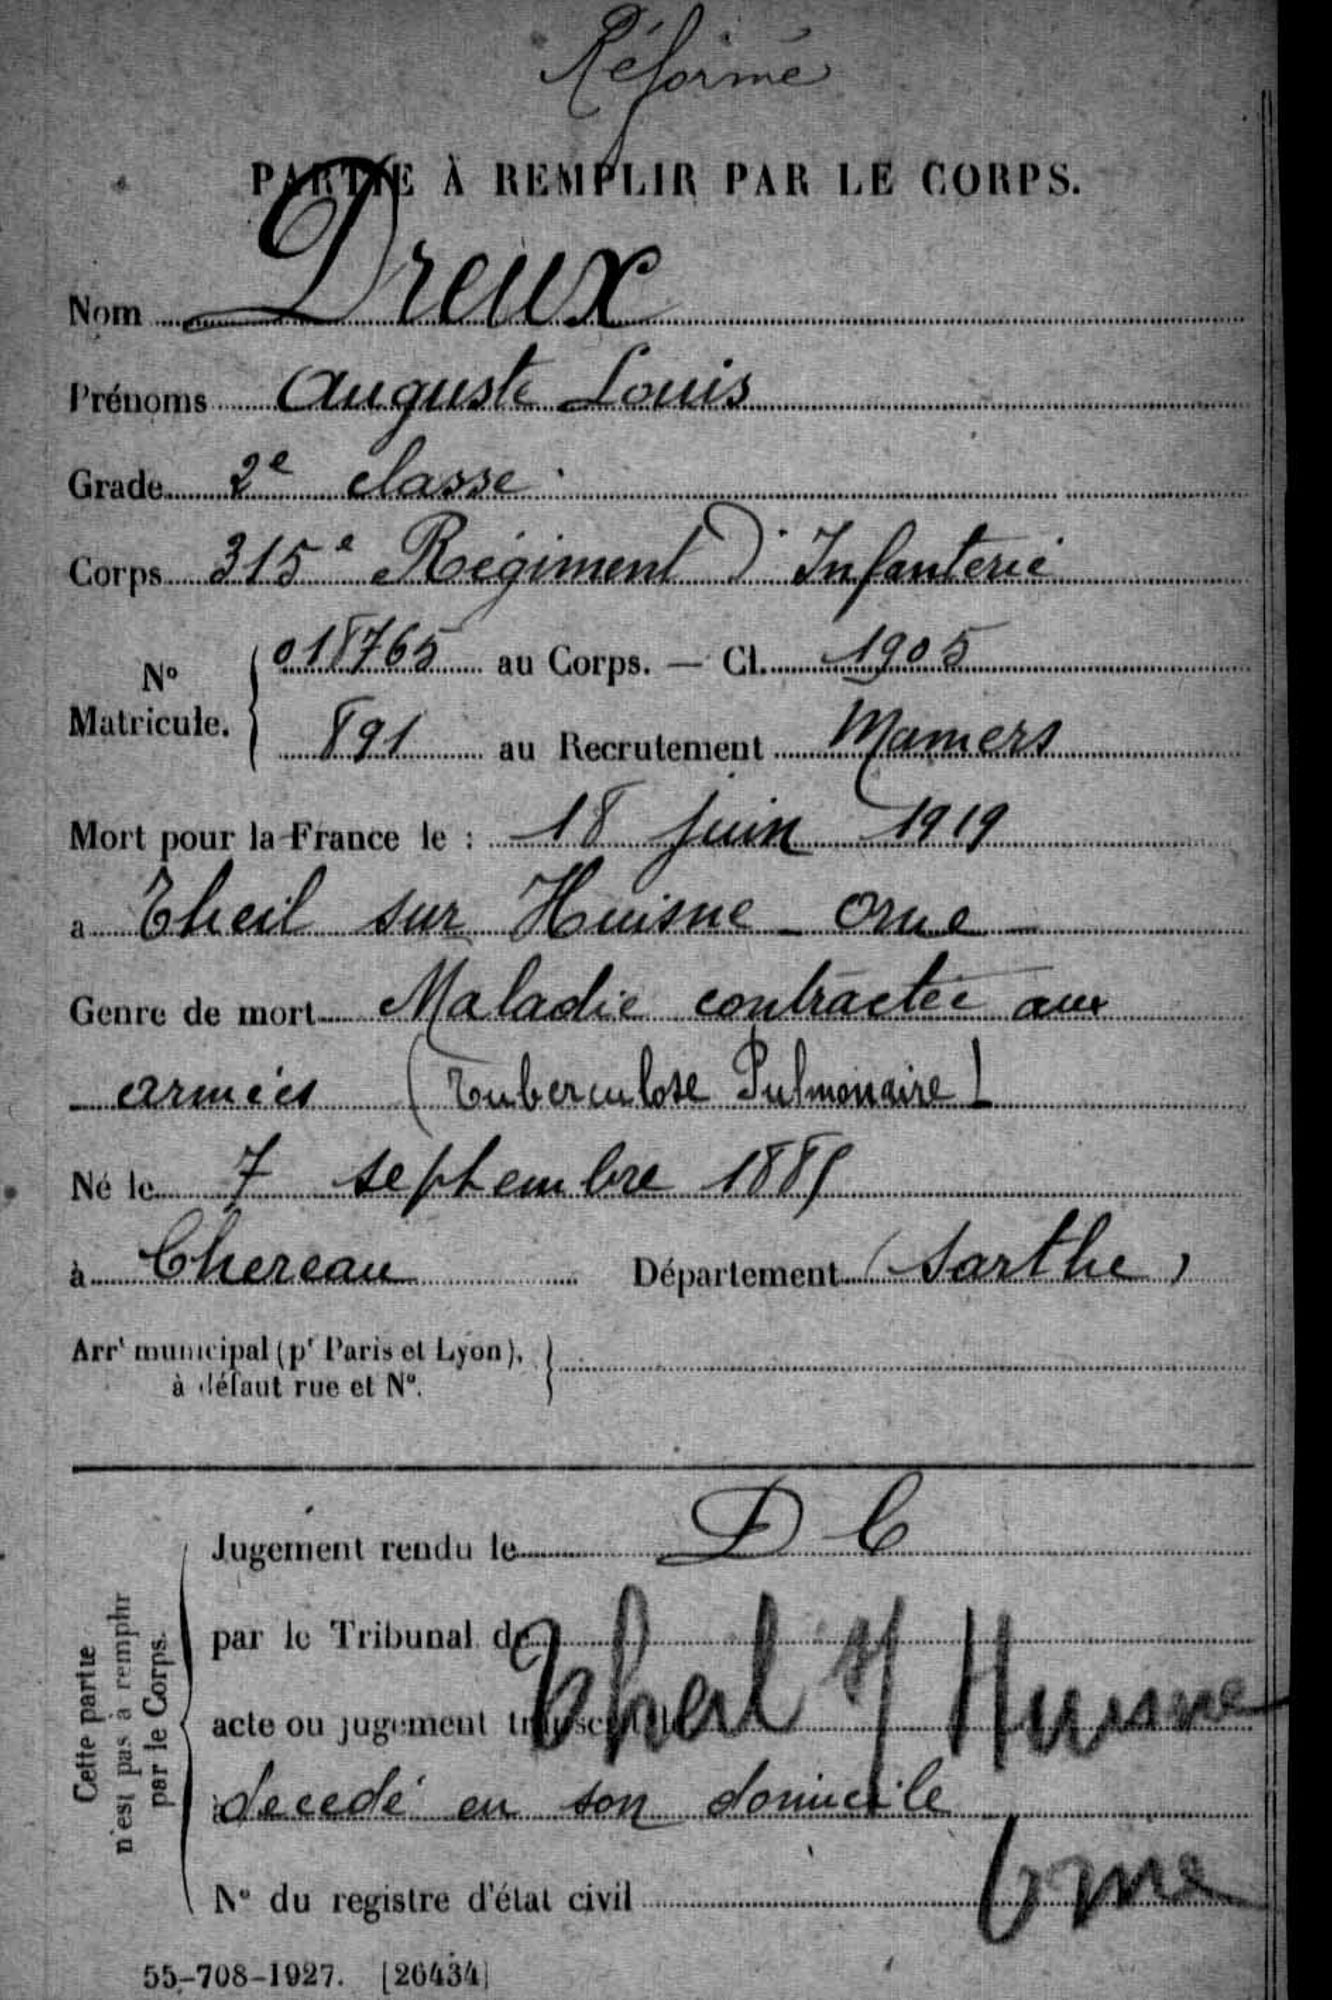 Réformé
PARTIE À REMPLIR PAR LE CORPS.
Nom Dreux
Prénoms Auguste Louis
Grade 2e classe
Corps 315e Régiment d'Infanterie
No Matricule. 018765 au Corps. — Cl. 1905
891 au Recrutement Mamers
Mort pour la France le : 18 juin 1919
a Theil sur Huisne - Orne -
Genre de mort Maladie contractée aux
armées (Tuberculose Pulmonaire)
Né le 7 septembre 1885
à Chereau Département (Sarthe)
Arrt municipal (pr Paris et Lyon),
à défaut rue et No.
Cette partie
n'est pas à remplir
par le Corps.
Jugement rendu le D C
par le Tribunal de
acte ou jugement transcrit le Theil s/ Huisne
à décédé en son domicile
No du registre d'état civil Orne
55-708-1927. [26434]